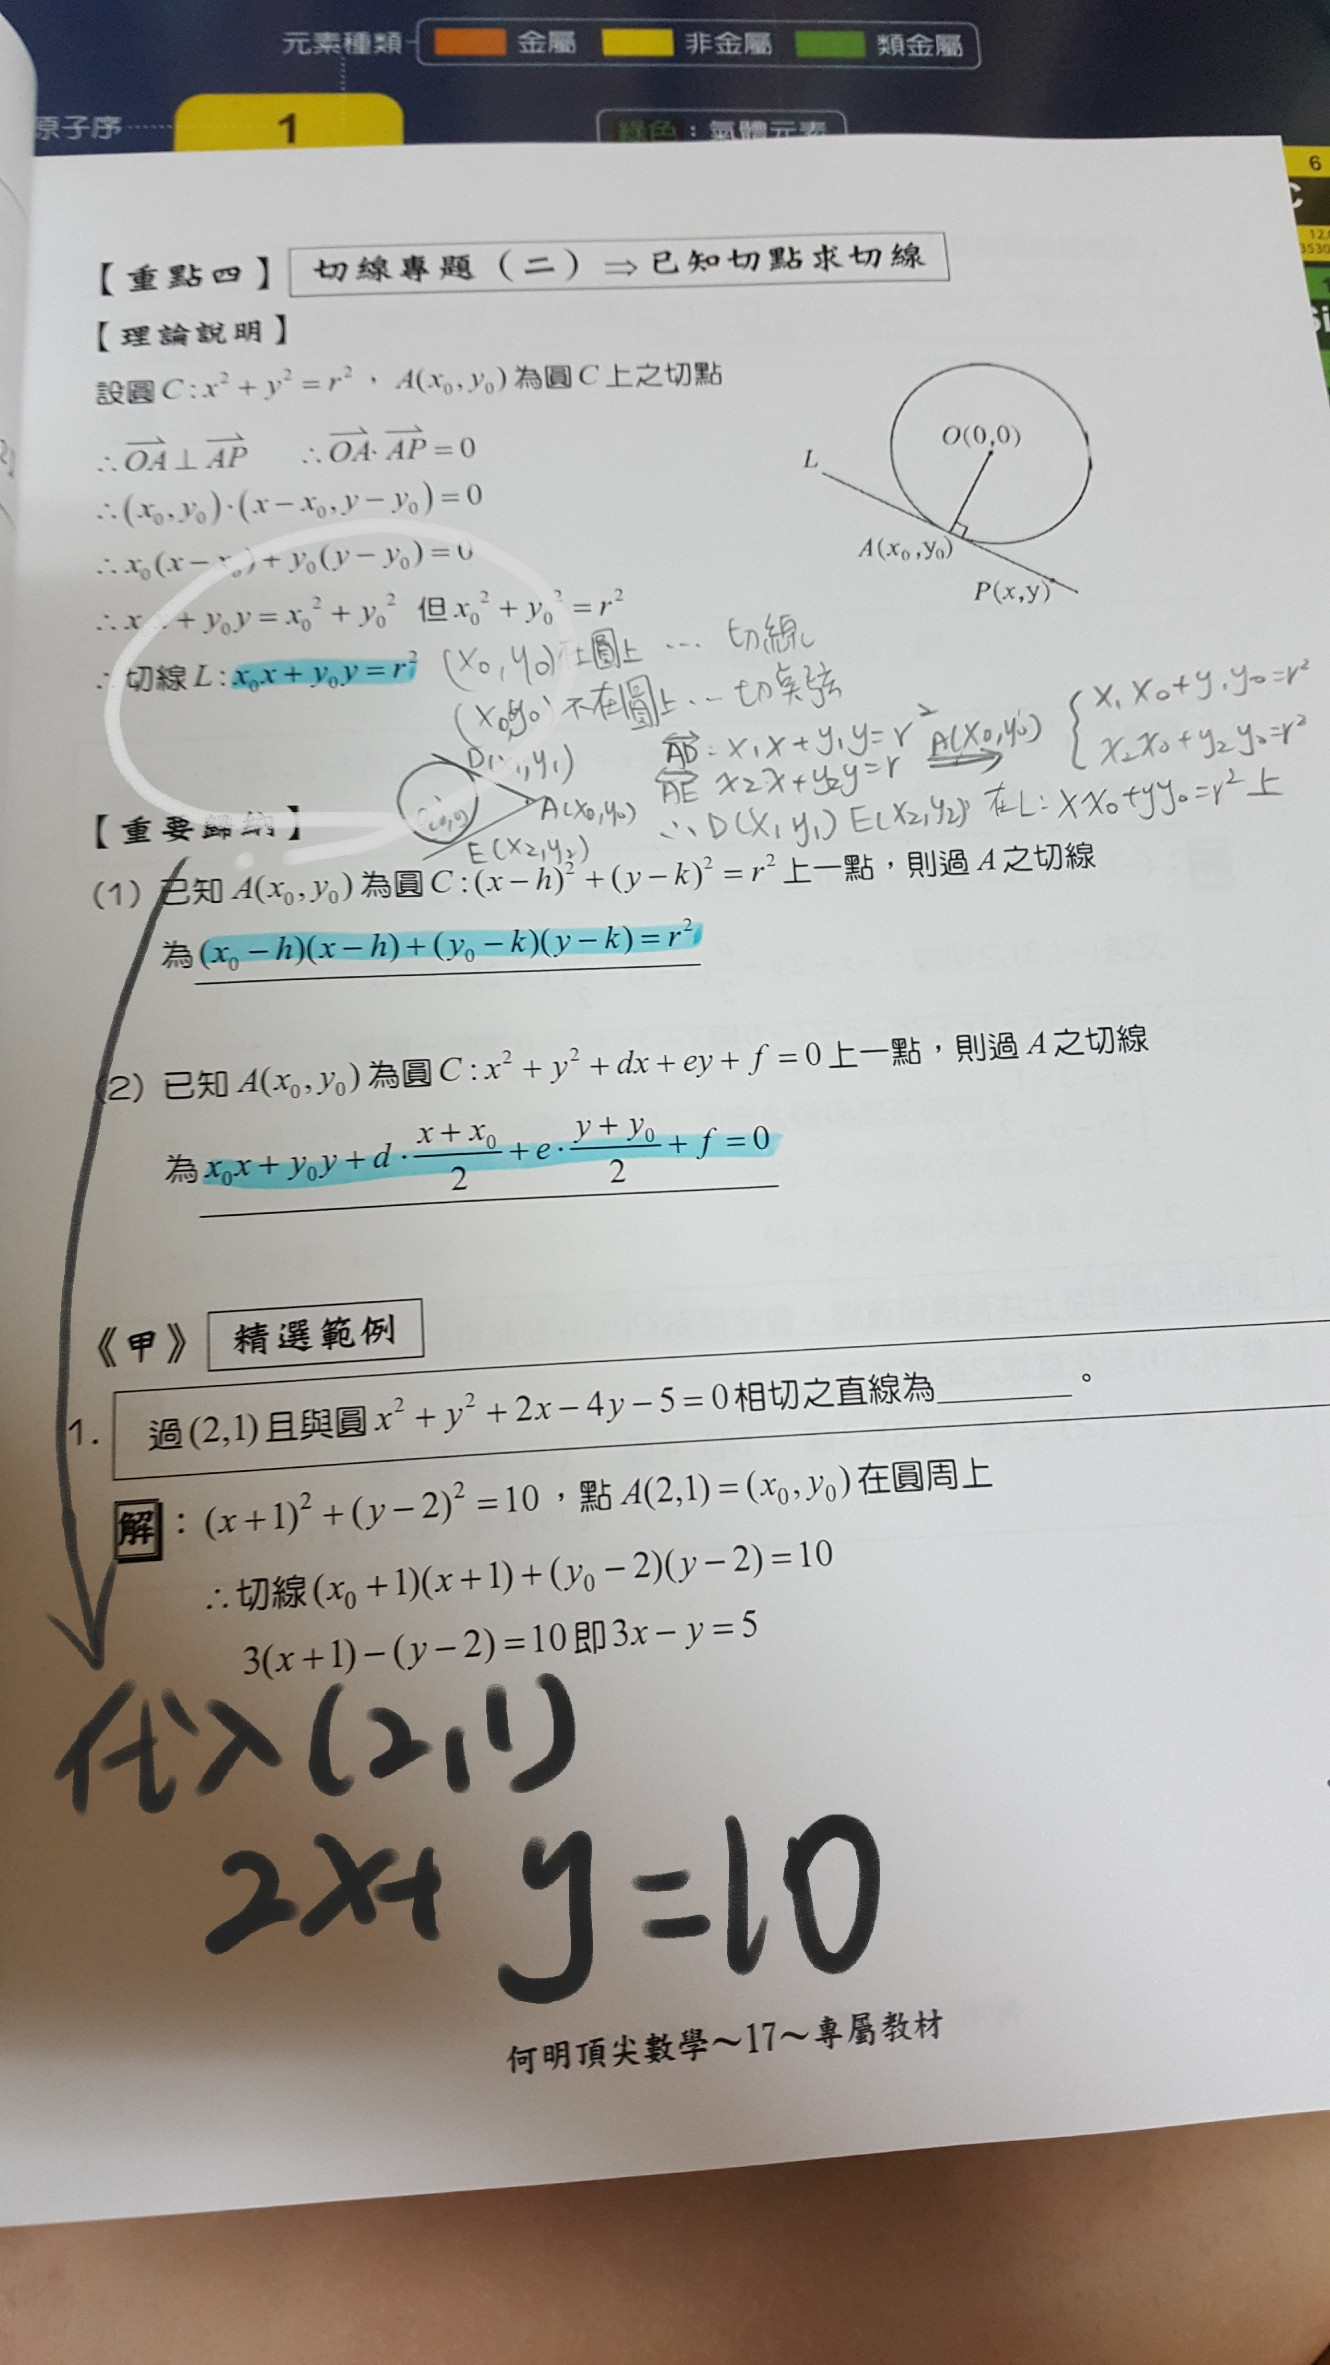 元素種類 金屬 非金屬 類金屬
原子序 1 綠色：氣體元素
6
【重點四】 切線專題（二）⇒已知切點求切線
【理論說明】
設圓 C : x² + y² = r² ， A(x₀, y₀) 為圓 C 上之切點
∴ OA ⊥ AP ∴ OA · AP = 0
∴ (x₀, y₀)·(x − x₀, y − y₀) = 0
∴ x₀(x − x₀) + y₀(y − y₀) = 0
∴ x₀x + y₀y = x₀² + y₀² 但 x₀² + y₀² = r²
∴ 切線 L : x₀x + y₀y = r²
O(0,0)
L
A(x₀,y₀)
P(x,y)
(x₀, y₀) 在圓上 … 切線
(x₀,y₀) 不在圓上 … 切點弦
AD : x₁x + y₁y = r² A(x₀,y₀) { x₁x₀ + y₁y₀ = r²
AE x₂x + y₂y = r x₂x₀ + y₂y₀ = r²
∴ D(x₁,y₁) E(x₂,y₂) 在 L : xx₀ + yy₀ = r² 上
D(x₁,y₁)
A(x₀,y₀)
E(x₂,y₂)
【重要歸納】
(1) 已知 A(x₀, y₀) 為圓 C : (x − h)² + (y − k)² = r² 上一點，則過 A 之切線
為 (x₀ − h)(x − h) + (y₀ − k)(y − k) = r²
(2) 已知 A(x₀, y₀) 為圓 C : x² + y² + dx + ey + f = 0 上一點，則過 A 之切線
為 x₀x + y₀y + d · (x + x₀)/2 + e · (y + y₀)/2 + f = 0
《甲》 精選範例
1. 過 (2,1) 且與圓 x² + y² + 2x − 4y − 5 = 0 相切之直線為________。
解：(x + 1)² + (y − 2)² = 10 ，點 A(2,1) = (x₀, y₀) 在圓周上
∴ 切線 (x₀ + 1)(x + 1) + (y₀ − 2)(y − 2) = 10
3(x + 1) − (y − 2) = 10 即 3x − y = 5
代入 (2,1)
2x + y = 10
何明頂尖數學～17～專屬教材